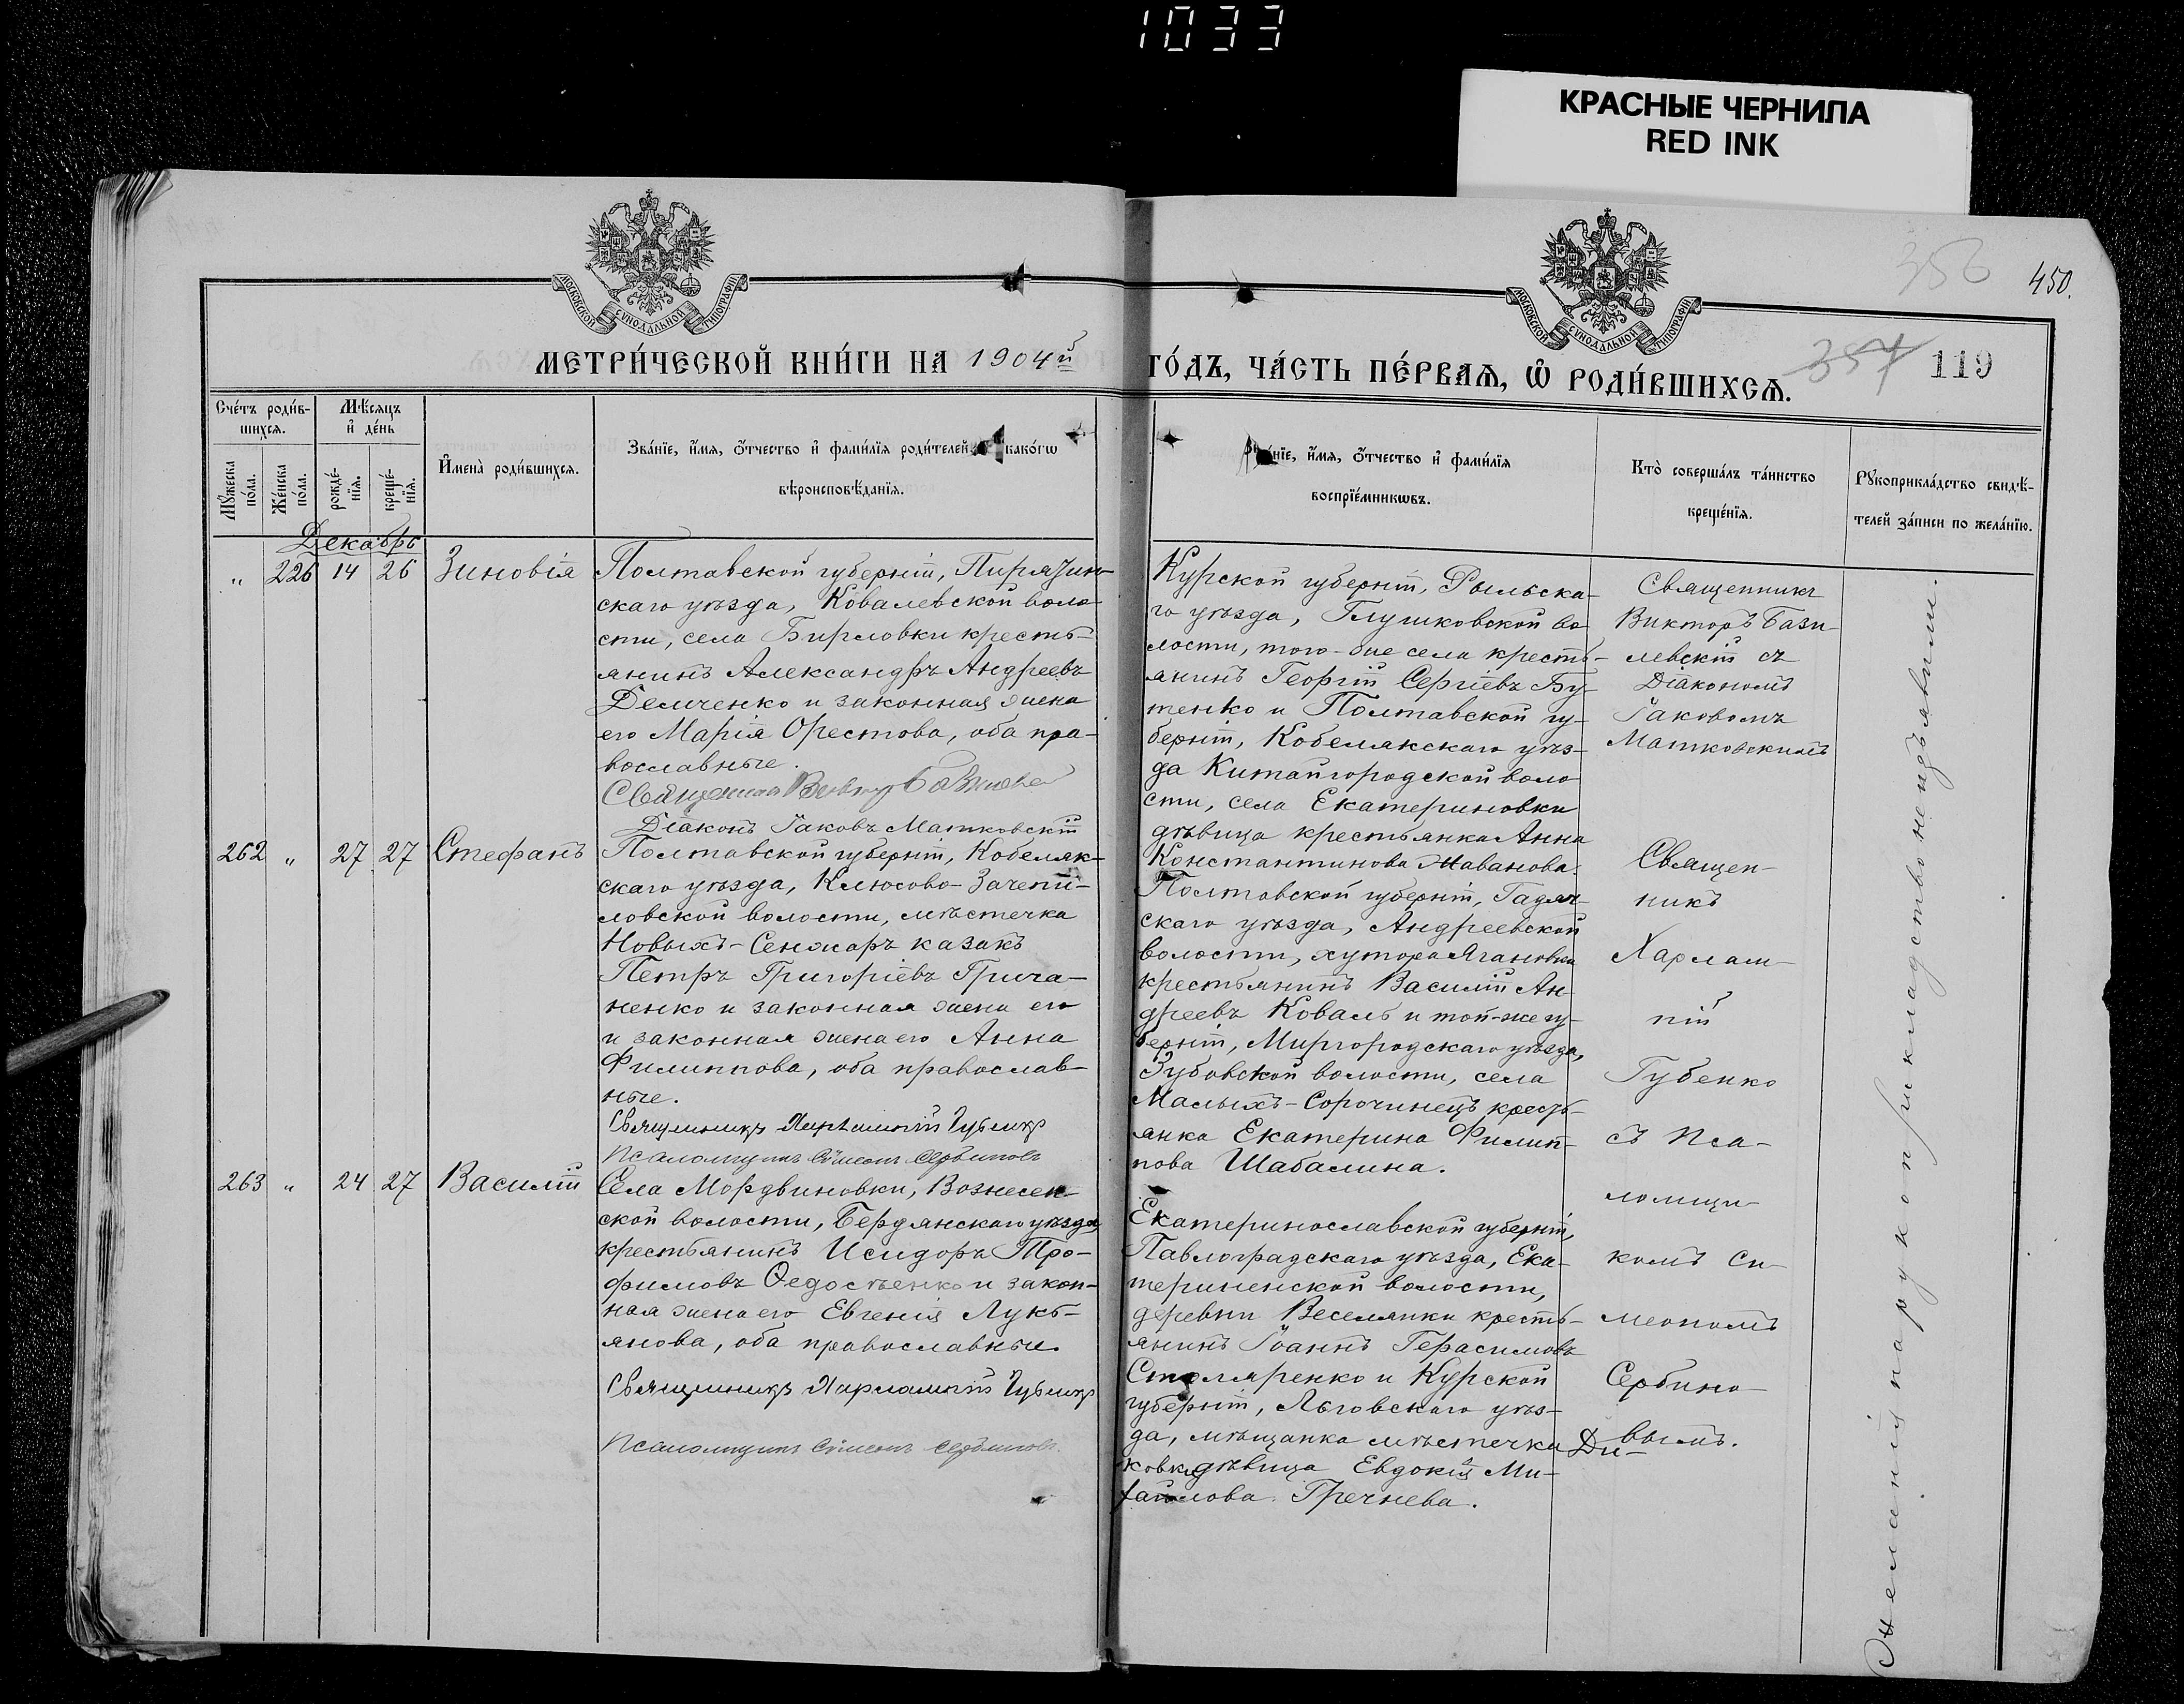 1033
КРАСНЫЕ ЧЕРНИЛА
RED INK
МОСКОВСКОЙ СѴНОДАЛЬНОЙ ТИПОГРАФІИ.
МОСКОВСКОЙ СѴНОДАЛЬНОЙ ТИПОГРАФІИ.
356
450.
МЕТРИ́ЧЕСКОЙ КНИ́ГИ НА 1904й
ГО́ДЪ, ЧА́СТЬ ПЕ́РВАѦ, Ѽ РОДИ́ВШИХСѦ.
357
119
Сче́тъ роди́в-
шихся.
Мѣ́сяцъ
и҆ де́нь
Мꙋ́жеска
по́ла.
Же́нска
по́ла.
рожде́-
нїя.
креще́-
нїя.
И҆мена̀ роди́вшихся.
Зва́нїе, и҆́мя, ѻ҆́тчество и҆ фами́лїя роди́телей како́гѡ
вѣроисповѣ́данїя.
нїе, и҆́мя, ѻ҆́тчество и҆ фами́лїя
воспрїе́мникѡвъ.
Кто̀ соверша́лъ та́инство
креще́нїя.
Рꙋкоприкла́дство свидѣ́-
телей за́писи по жела́нїю.
Декабрь
„ 226 14 26 Зиновія
Полтавской губерніи, Пирятин-
скаго уѣзда, Ковалевской воло-
сти, села Бирловки кресть-
янинъ Александръ Андреевъ
Демченко и законная жена
его Марія Орестова, оба пра-
вославные.
Священникъ Викторъ Базилевскій
Діаконъ Іаковъ Матковскій
Курской губерніи, Рыльска-
го уѣзда, Глушковской во-
лости, того-же села кресть-
янинъ Георгій Сергіевъ Бу-
тенко и Полтавской гу-
берніи, Кобелякскаго уѣз-
да Китайгородской воло-
сти, села Екатериновки
дѣвица крестьянка Анна
Константинова Жаванова.
Священникъ
Викторъ Бази-
левскій съ
Діакономъ
Іаковомъ
Матковскимъ
262 „ 27 27 Стефанъ
Полтавской губерніи, Кобеляк-
скаго уѣзда, Клюсово-Зачепи-
ловской волости, мѣстечка
Новыхъ-Сенжаръ казакъ
Петръ Григоріевъ Грича-
ненко и законная жена его
и законная жена его Анна
Филиппова, оба православ-
ные.
Священникъ Харлампій Губенко
Псаломщикъ Сѵмеонъ Сербиновъ
Полтавской губерніи, Гадяч-
скаго уѣзда, Андреевской
волости, хутора Ягановки
крестьянинъ Василій Ан-
дреевъ Коваль и той-же гу-
берніи, Миргородскаго уѣзда,
Зубовской волости, села
Малыхъ-Сорочинецъ кресть-
янка Екатерина Филип-
пова Шабалина.
Священ-
никъ
Харлам-
пій
Губенко
съ Пса-
ломщи-
комъ Си-
меономъ
Сербино-
вымъ.
263 „ 24 27 Василій
Села Мордвиновки, Вознесен-
ской волости, Бердянскаго уѣзда
крестьянинъ Исидоръ Тро-
фимовъ Ѳедосѣенко и закон-
ная жена его Евгенія Лукь-
янова, оба православные.
Священникъ Харлампій Губенко
Псаломщикъ Сѵмеонъ Сербиновъ.
Екатеринославской губерніи,
Павлоградскаго уѣзда, Ека-
териненской волости,
деревни Веселянки кресть-
янинъ Іоаннъ Герасимовъ
Столяренко и Курской
губерніи, Льговскаго уѣз-
да, мѣщанка мѣстечка Дю-
ковки дѣвица Евдокія Ми-
хайлова Гречнева.
Желанія на рукоприкладство не изъявили.